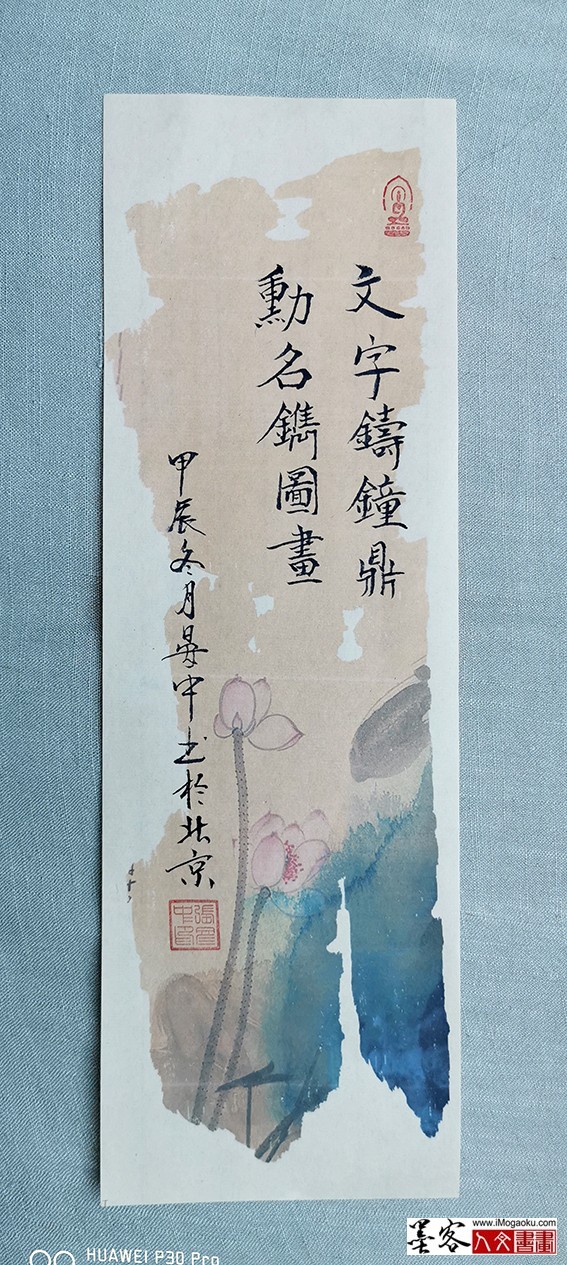 文字鑄鐘鼎
勳名鐫圖畫
甲辰冬月晏中书於北京
HUAWEI P30 Pro
墨客
www.iMogaoku.com
人文書畫